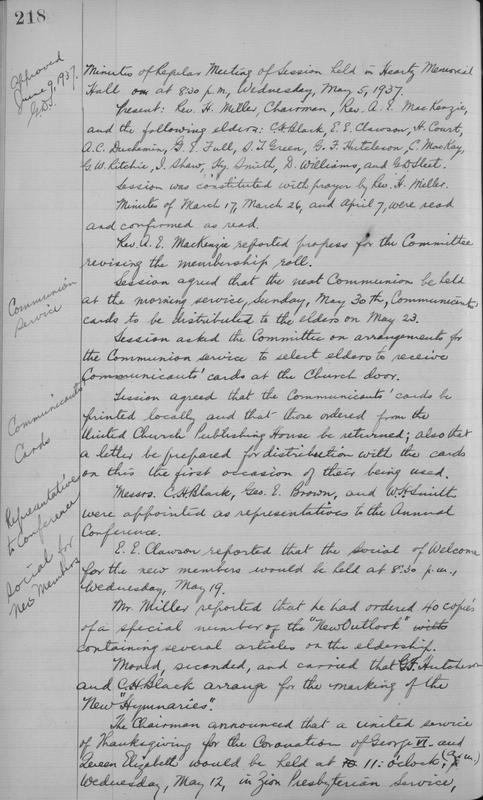 218
Approved
June 9, 1937.
G.D.S.
Minutes of Regular Meeting of Session held in Heartz Memorial
Hall on at 8:30 p.m, Wednesday, May 5, 1937.
Present: Rev. H. Miller, Chairman, Rev. A. E. MacKenzie,
and the following elders: C.H. Black, E.E. Clawson, H. Court,
A.C. Duchemin, G. E. Full, S.T. Green, G. F. Hutcheson, C. MacKay,
G.W. Ritchie, I. Shaw, Hy. Smith, D. Williams, and G.D. Steel.
Session was constituted with prayer by Rev. H. Miller.
Minutes of March 17, March 26, and April 7, were read
and confirmed as read.
Rev. A. E. MacKenzie reported progress for the Committee
revising the membership roll.
Communion
Service
Session agreed that the next Communion be held
at the morning service, Sunday, May 30th, Communicants'
cards to be distributed to the elders on May 23.
Session asked the Committee on arrangements for
the Communion service to select elders to receive
Communicants' cards at the Church door.
Communicants'
Cards
Session agreed that the Communicants' cards be
printed locally and that those ordered from the
United Church Publishing House be returned; also that
a letter be prepared for distribution with the cards
on this the first occasion of their being used.
Representative
to Conference
Messrs. C.H. Black, Geo. E. Brown, and W.H. Smith
were appointed as representatives to the Annual
Conference.
Social for
New Members
E. E. Clawson reported that the Social of Welcome
for the new members would be held at 8:30 p.m.,
Wednesday, May 19.
Mr. Miller reported that he had ordered 40 copies
of a special number of the "New Outlook" with
containing several articles on the eldership.
Moved, seconded, and carried that G.F. Hutcheson
and C.H. Black arrange for the marking of the
New "Hymnaries".
The Chairman announced that a united service
of Thanksgiving for the Coronation of George VI and
Queen Elizabeth would be held at 10 11: o'clock, (a.m.)
Wednesday, May 12, in Zion Presbyterian Service,